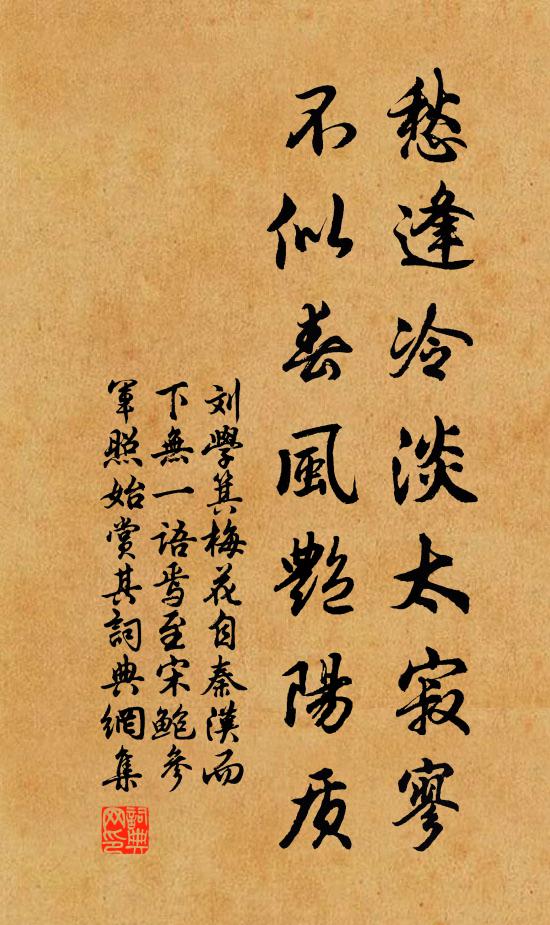 愁逢冷淡太寂寥
不似春風艷陽质
刘學箕梅花自秦漢而
下無一語焉至宋鮑參
軍照始賞其詞典網集
詞典网印